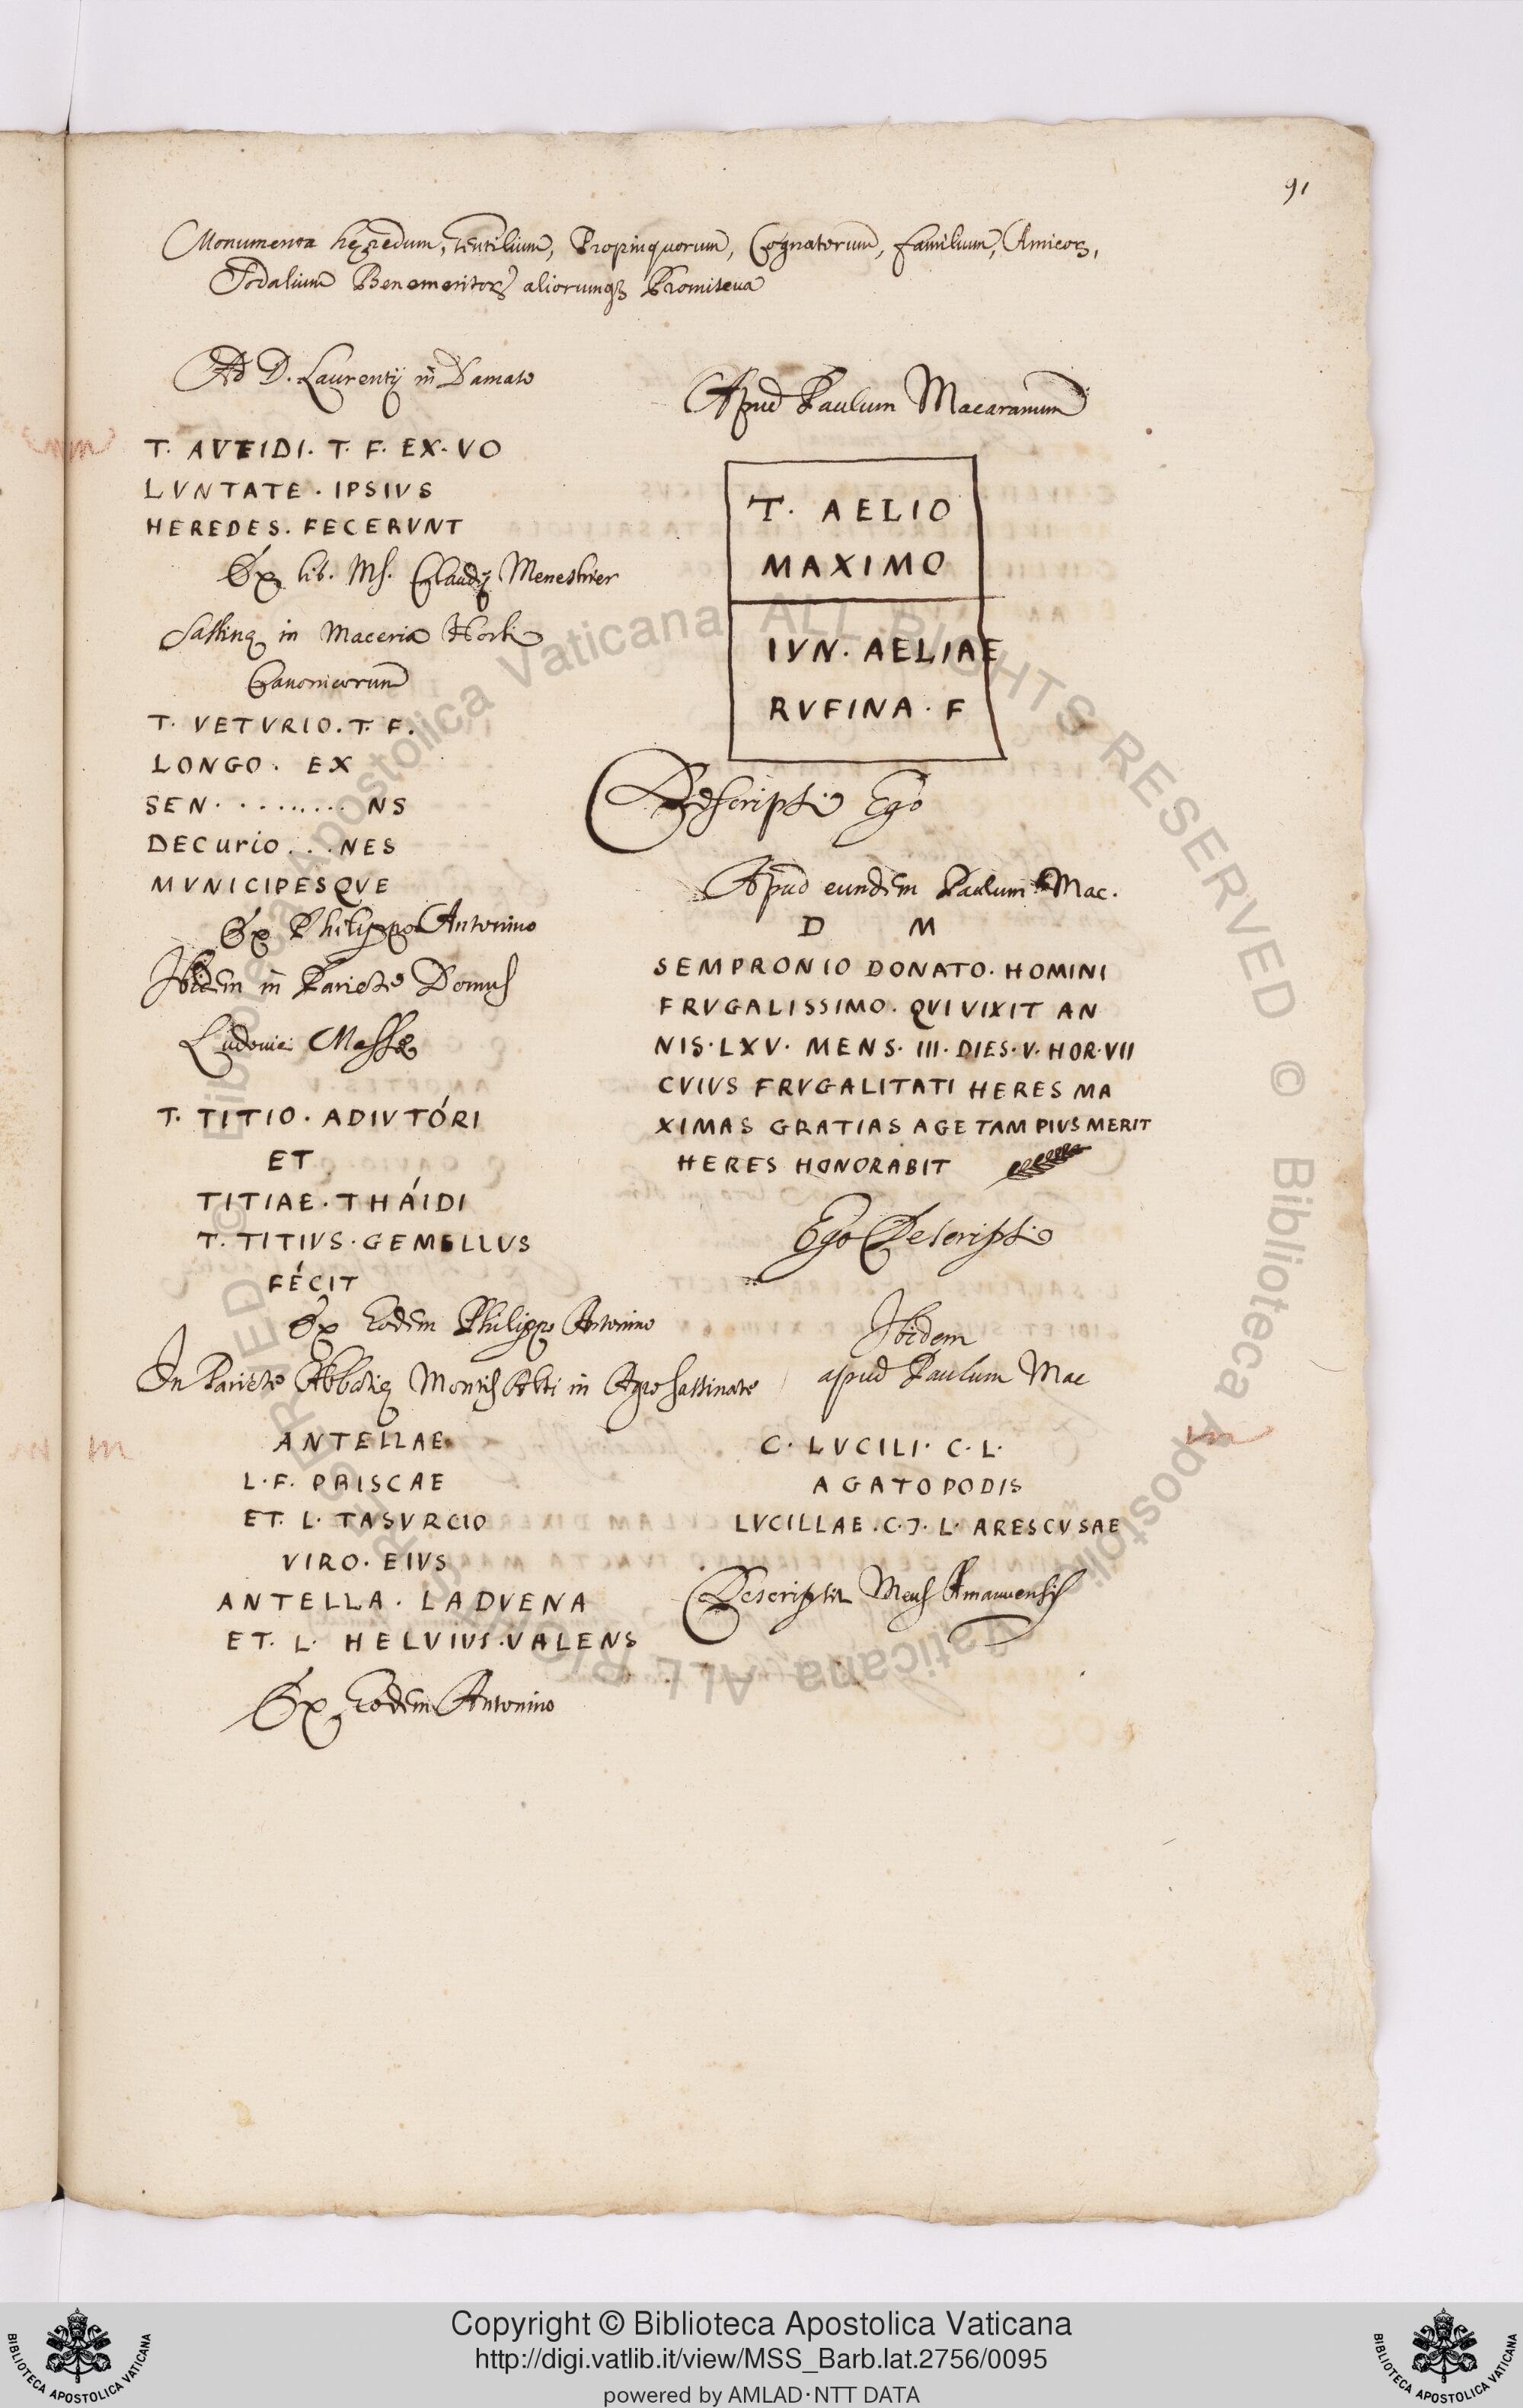 91
Monumenta hęredum, Gentilium, Propinquorum, Cognatorum, familium, Amicorꝝ,
Sodalium Benemeritorꝝ aliorumqꝫ Promiscua
Ad D. Laurentij in Damaso
T. AVFIDI. T. F. EX. VO
LVNTATE . IPSIVS
HEREDES. FECERVNT
Ex lib. Ms. Claudij Menestrier
Sassinę in Maceria Horti
Canonicorum
T. VETVRIO. T. F.
LONGO. EX
SEN. . . . . . . . . NS
DECurio . . . NES
MVNICIPESQVE
Ex Philippo Antonino
Ibidem in Pariete Domus
Ludovici Massę
T. TITIO. ADIVTÓRI
ET
TITIAE. THÁIDI
T. TITIVS. GEMELLVS
FÉCIT
Ex Eodem Philippo Antonino
In Pariete Abbatię Montis Alti in Agro Sassinate
ANTELLAE
L. F. PRISCAE
ET. L. TASVRCIO
VIRO. EIVS
ANTELLA. LADVENA
ET. L. HELVIVS. VALENS
Ex Eodem Antonino
Apud Paulum Macaranum
T. AELIO
MAXIMO
IVN. AELIAE
RVFINA. F
Descripsi Ego
Apud eundem Paulum Mac.
D M
SEMPRONIO DONATO. HOMINI
FRVGALISSIMO. QVI VIXIT AN
NIS. LXV. MENS. III. DIES. V. HOR. VII
CVIVS FRVGALITATI HERES MA
XIMAS GRATIAS AGE TAM PIVS MERIT
HERES HONORABIT
Ego Descripsi
Ibidem
apud Paulum Mac
C. LVCILI. C. L.
AGATOPODIS
LVCILLAE. C. Ɔ. L. ARESCVSAE
Descripsit Meus Amanuensis
m
m
© Biblioteca Apostolica Vaticana ALL RIGHTS RESERVED
© Biblioteca Apostolica Vaticana ALL RIGHTS RESERVED
BIBLIOTECA APOSTOLICA VATICANA
Copyright © Biblioteca Apostolica Vaticana
http://digi.vatlib.it/view/MSS_Barb.lat.2756/0095
powered by AMLAD·NTT DATA
BIBLIOTECA APOSTOLICA VATICANA